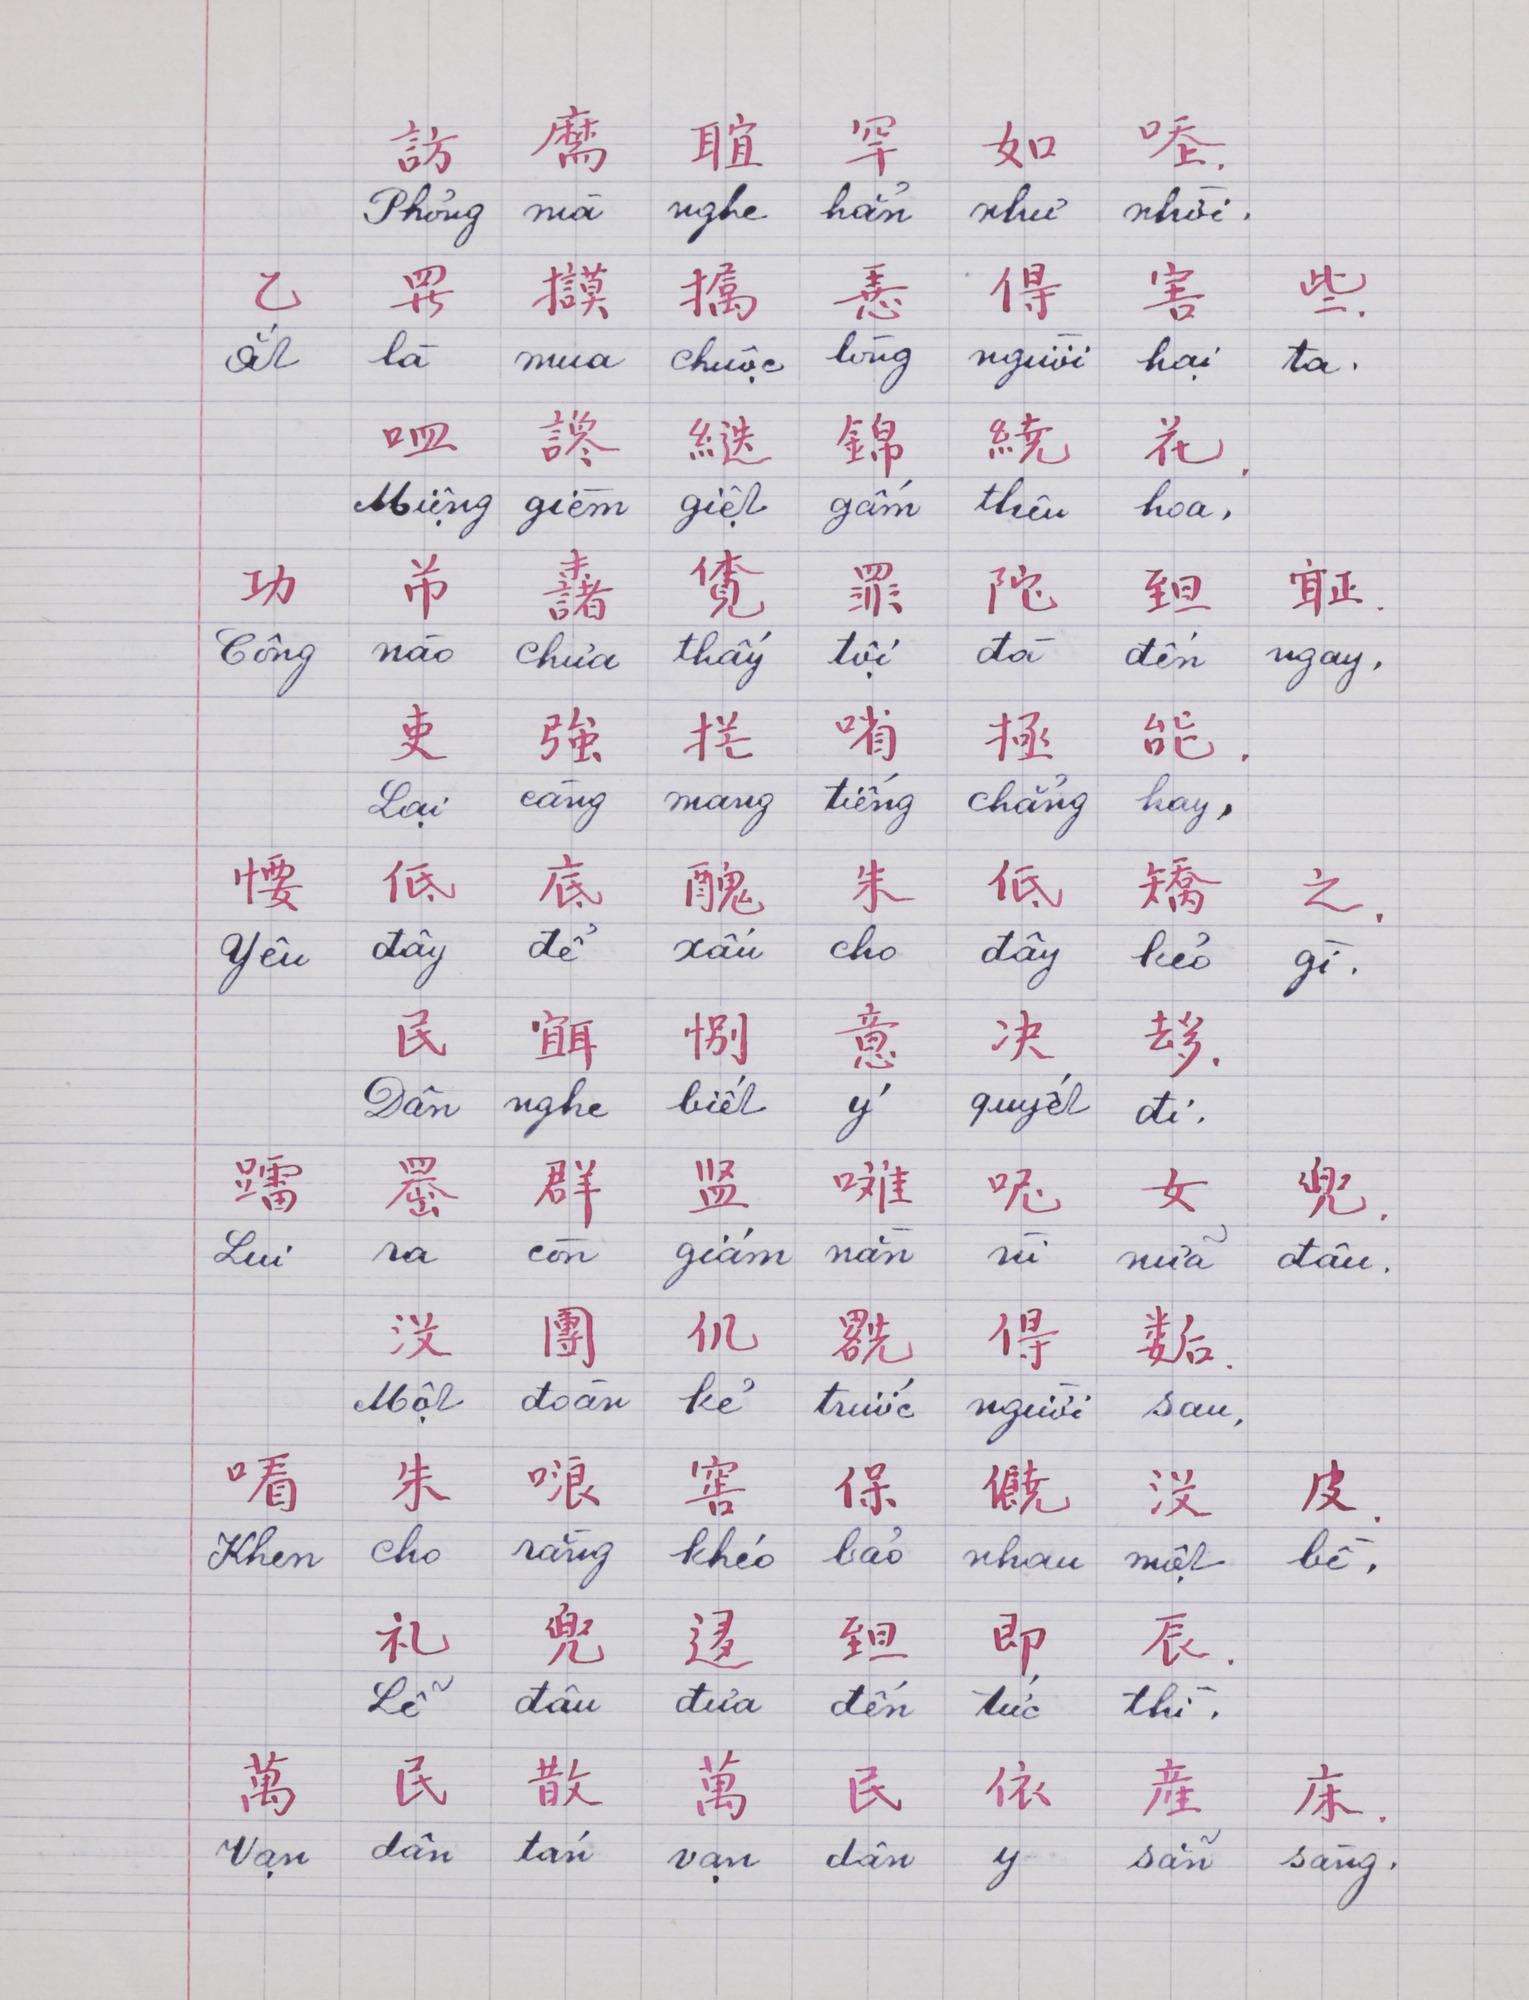 訪 麿 聑 罕 如 𠸦.
Phỏng mà nghe hẳn như nhời.
乙 𱺵 摸 㩫 悉 得 害 些.
Ắt là mua chuộc lòng người hại ta.
𠰘 謬 緍 錦 繞 花.
Miệng gièm giệt gấm thêu hoa,
功 芇 𣗓 𧡊 罪 陀 𦤾 𣦍.
Công nào chưa thấy tội đà đến ngay,
吏 強 𫼳 㗂 拯 𫨩.
Lại càng mang tiếng chẳng hay,
㤇 低 底 醜 朱 低 矯 之.
Yêu đây để xấu cho đây kẻo gì.
民 𦖑 别 意 决 𠫾.
Dân nghe biết ý quyết đi.
𨆢 𱱇 群 監 㘓 呢 女 兜.
Lui ra còn giám nàn nì nữa đâu.
没 團 仉 𠓀 得 𢖕.
Một đoàn kẻ trước người sau,
𠸦 朱 哴 窖 保 𠑬 没 皮.
Khen cho rằng khéo bảo nhau một bề,
礼 兜 迻 𦤾 即 辰.
Lễ đâu đưa đến tức thì.
萬 民 散 萬 民 依 産 床.
Vạn dân tán vạn dân y sẵn sàng.